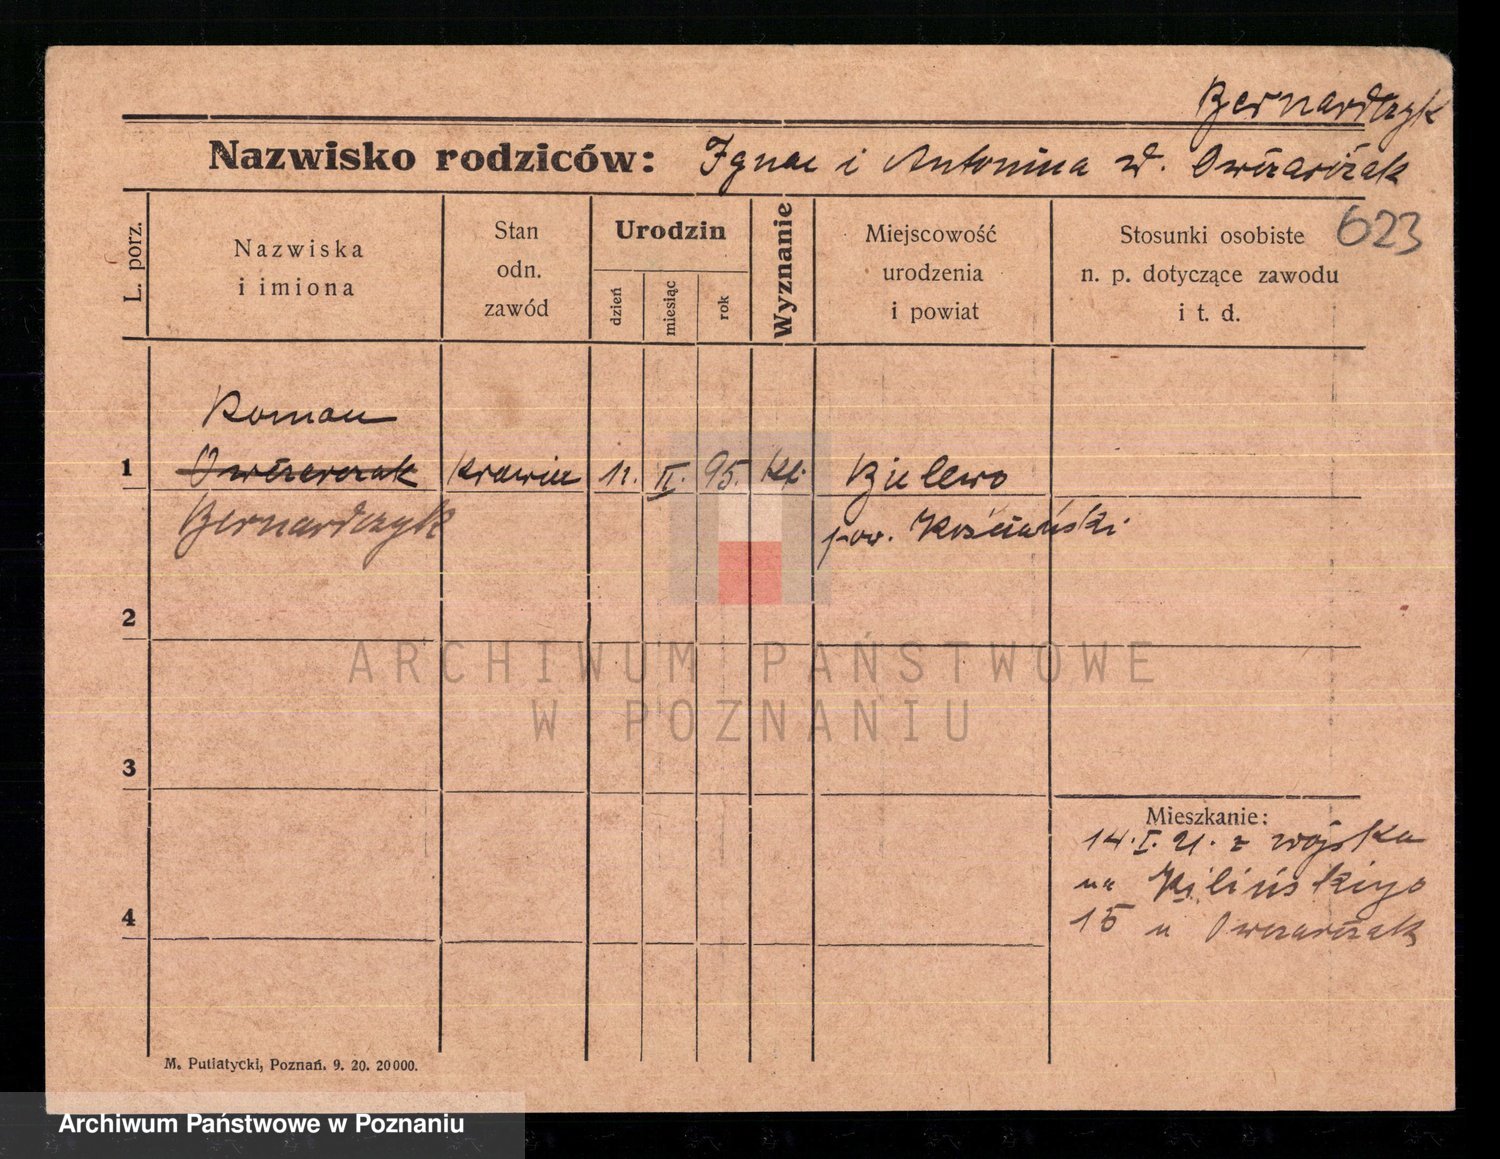 Bernardczyk
Nazwisko rodziców: Ignac i Antonina z d. Owczarczak
623
L. porz.
Nazwiska
i imiona
Stan
odn.
zawód
Urodzin
dzień
miesiąc
rok
Wyznanie
Miejscowość
urodzenia
i powiat
Stosunki osobiste
n. p. dotyczące zawodu
i t. d.
Roman
1 Owczarczak krawiec 12. II. 95. kt. Bielewo
Bernardczyk pow. Kościański
2
ARCHIWUM PAŃSTWOWE
W POZNANIU
3
Mieszkanie:
14. I. 21. z wojska
na Kilińskiego
4
15 u Owczarczak
M. Putiatycki, Poznań. 9. 20. 20000.
Archiwum Państwowe w Poznaniu